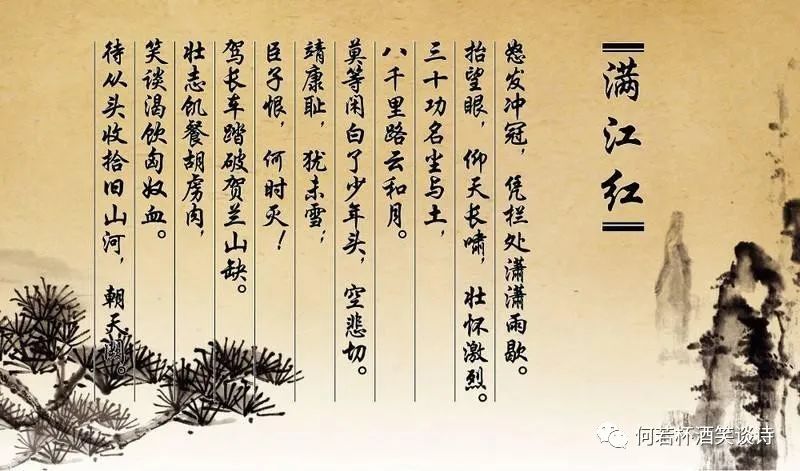 满江红
怒发冲冠，凭栏处潇潇雨歇。
抬望眼，仰天长啸，壮怀激烈。
三十功名尘与土，
八千里路云和月。
莫等闲白了少年头，空悲切。
靖康耻，犹未雪；
臣子恨，何时灭！
驾长车踏破贺兰山缺。
壮志饥餐胡虏肉，
笑谈渴饮匈奴血。
待从头收拾旧山河，朝天阙。
何若杯酒笑谈诗